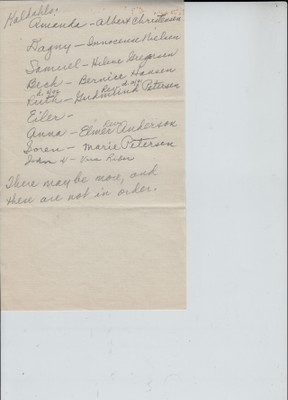 Kaldahls:
Amanda - Albert Christensen
Dagny - Innocense Nielsen
Samuel - Helene Gregersen
Beck - Bernice Hansen
Ruth - Gudmund Petersen
Eiler -
Anna - Elmer Anderson
Soren - Marie Petersen
John V - Vera
There may be more, and
these are not in order.